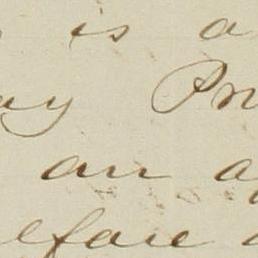 is a
ay Pr
an a
elfare